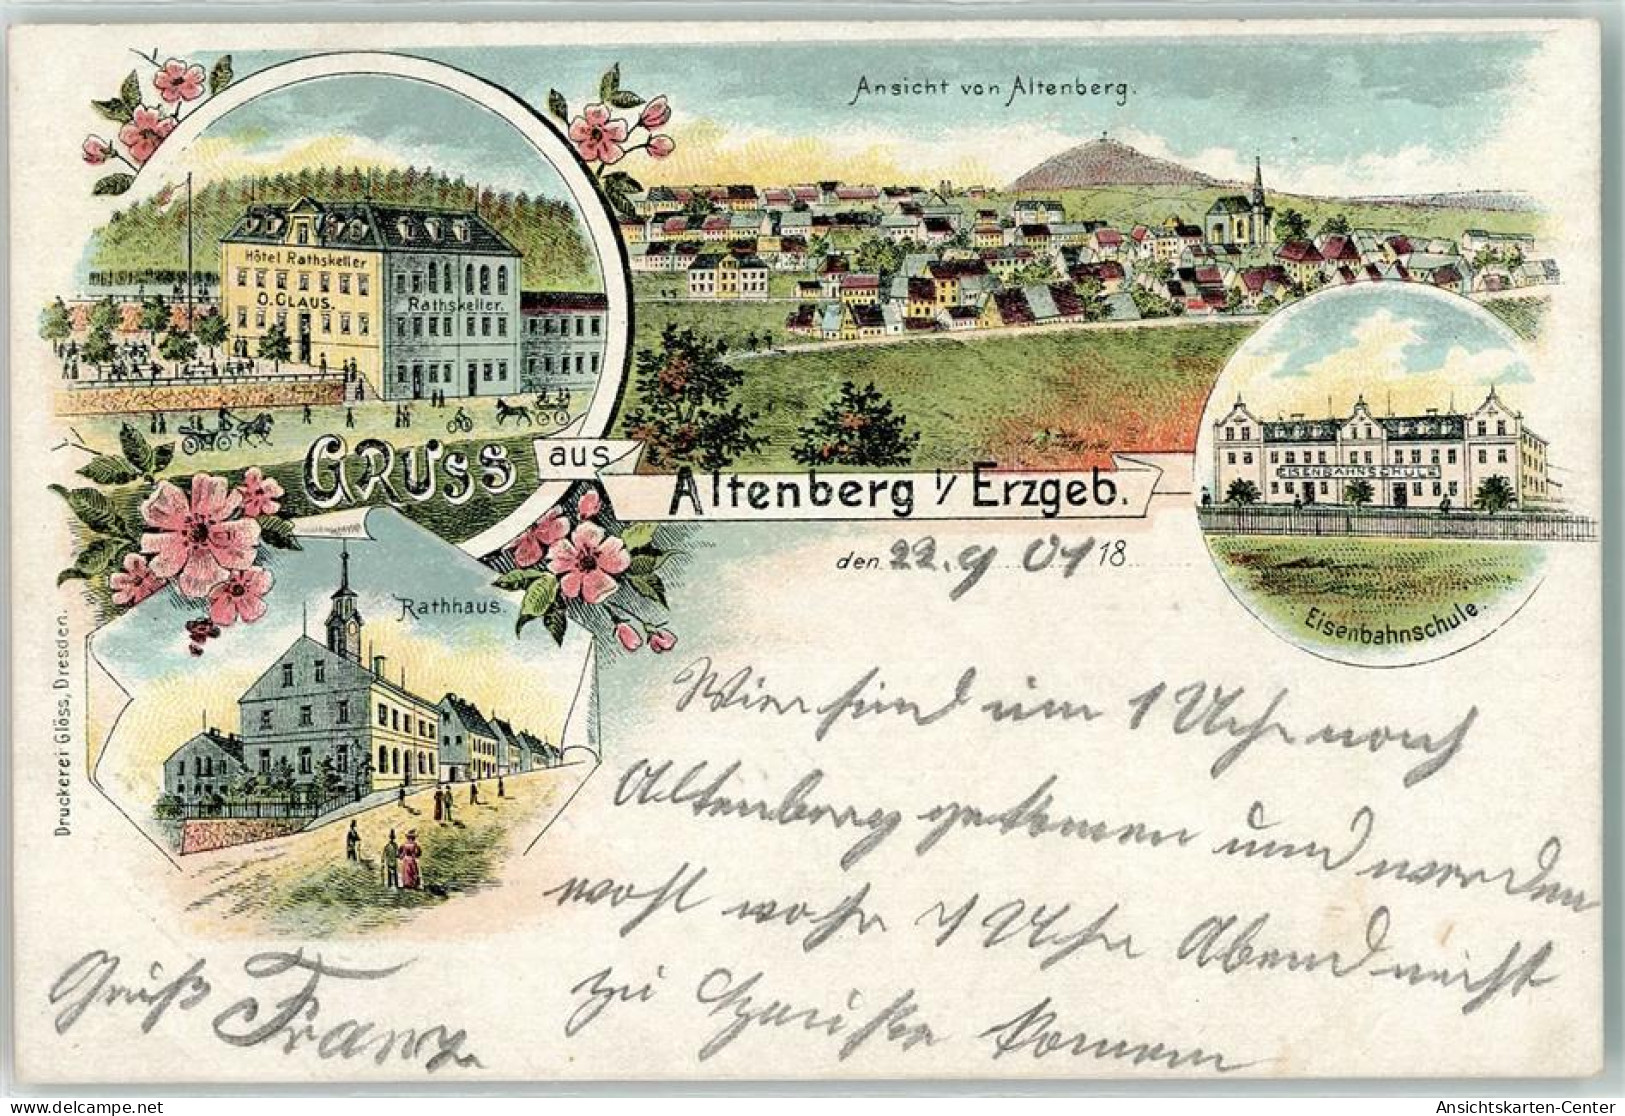 Ansicht von Altenberg.
Hôtel Rathskeller
O. CLAUS.
Rathskeller.
GRUSS aus
Altenberg i/ Erzgeb.
EISENBAHNSCHULE
Eisenbahnschule.
den 22.9 01 18
Rathhaus.
Druckerei Glöss, Dresden.
Wier sind um 1 Uhr nach
Altenberg gekomen und werden
wohl vohr 9 Uhr Abend nicht
zu Hause komen
Gruß Franz
Ansichtskarten-Center
delcampe.net